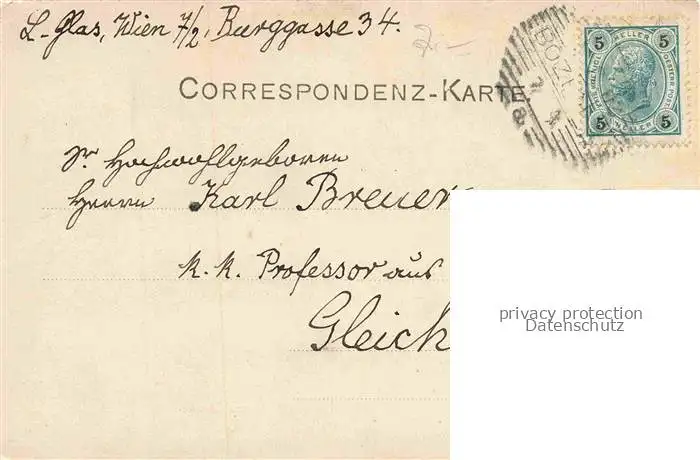 L. Glas, Wien 7/2, Burggasse 34.
CORRESPONDENZ-KARTE
BOZE
5 HELLER 5
5 HELLER 5
Sr Hochwohlgeboren
Herrn Karl Breuer
k. k. Professor aus
Gleich
privacy protection
Datenschutz